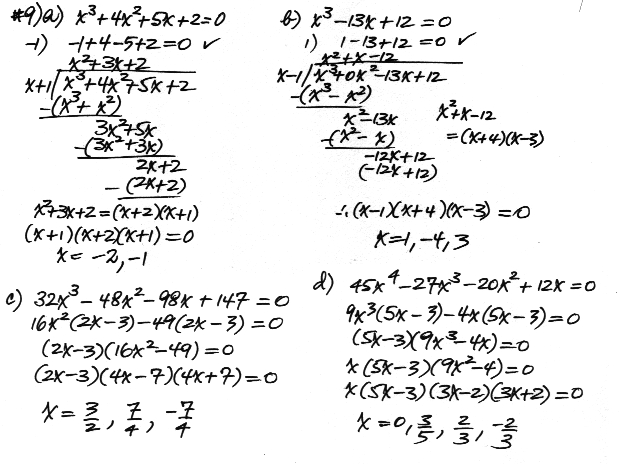 #9) a) x³+4x²+5x+2=0
-1) -1+4-5+2=0 ✓
x²+3x+2
x+1/x³+4x²+5x+2
-(x³+x²)
3x²+5x
-(3x²+3x)
2x+2
-(2x+2)
x²+3x+2=(x+2)(x+1)
(x+1)(x+2)(x+1)=0
x= -2,-1
b) x³-13x+12=0
1) 1-13+12=0 ✓
x²+x-12
x-1/x³+0x²-13x+12
-(x³-x²)
x²-13x
-(x²-x)
-12x+12
(-12x+12)
x²+x-12
=(x+4)(x-3)
∴(x-1)(x+4)(x-3)=0
x=1,-4,3
c) 32x³-48x²-98x+147=0
16x²(2x-3)-49(2x-3)=0
(2x-3)(16x²-49)=0
(2x-3)(4x-7)(4x+7)=0
x=3/2, 7/4, -7/4
d) 45x⁴-27x³-20x²+12x=0
9x³(5x-3)-4x(5x-3)=0
(5x-3)(9x³-4x)=0
x(5x-3)(9x²-4)=0
x(5x-3)(3x-2)(3x+2)=0
x=0, 3/5, 2/3, -2/3